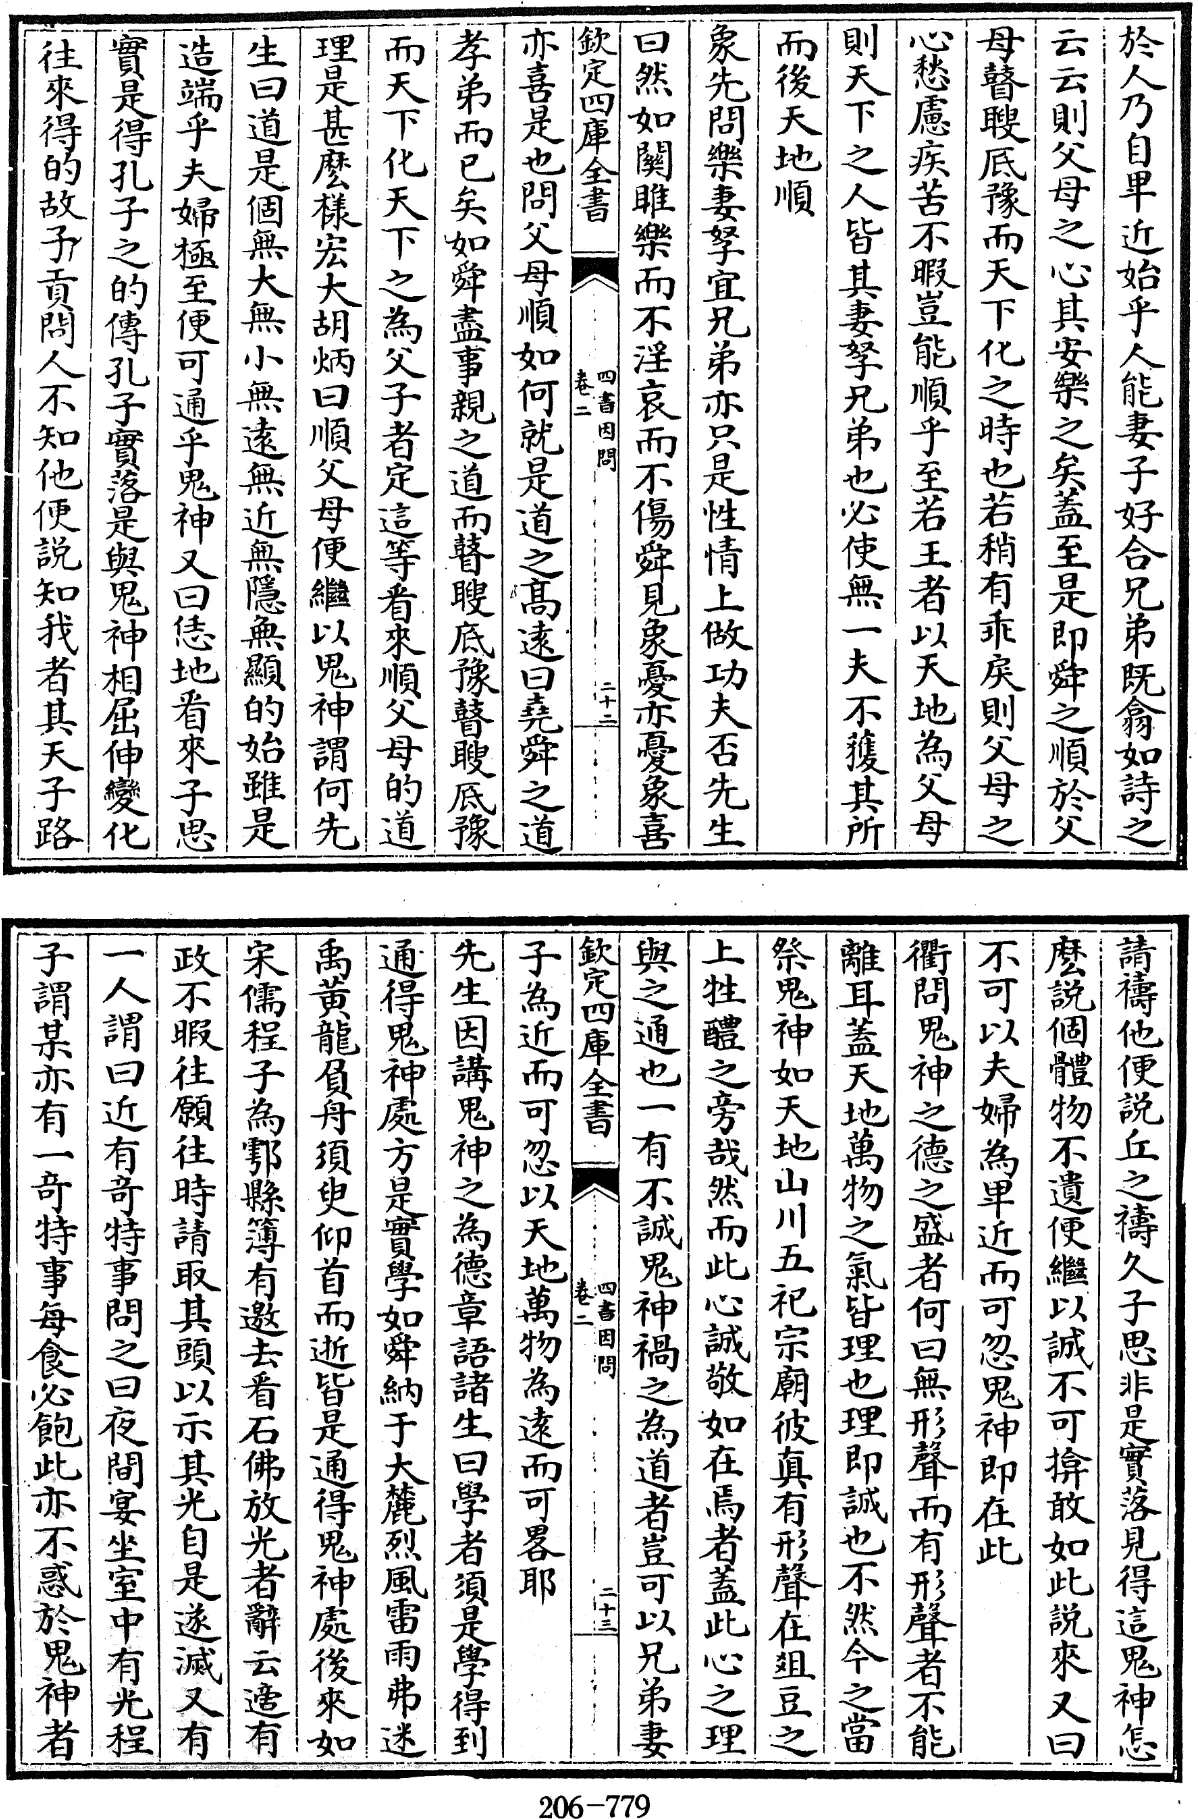 於人乃自卑近始乎人能妻子好合兄弟既翕如詩之
云云則父母之心其安樂之矣蓋至是即舜之順於父
母瞽瞍厎豫而天下化之時也若稍有乖戾則父母之
心愁慮疾苦不暇豈能順乎至若王者以天地為父母
則天下之人皆其妻孥兄弟也必使無一夫不獲其所
而後天地順
象先問樂妻孥宜兄弟亦只是性情上做功夫否先生
曰然如關雎樂而不淫哀而不傷舜見象憂亦憂象喜
欽定四庫全書
四書因問
卷二
二十二
亦喜是也問父母順如何就是道之高遠曰堯舜之道
孝弟而已矣如舜盡事親之道而瞽瞍厎豫瞽瞍厎豫
而天下化天下之為父子者定這等看來順父母的道
理是甚麽樣宏大胡炳曰順父母便繼以鬼神謂何先
生曰道是個無大無小無遠無近無隱無顯的始雖是
造端乎夫婦極至便可通乎鬼神又曰恁地看來子思
實是得孔子之的傳孔子實落是與鬼神相屈伸變化
往來得的故子貢問人不知他便說知我者其天子路
請禱他便說丘之禱久子思非是實落見得這鬼神怎
麽說個體物不遺便繼以誠不可揜敢如此說來又曰
不可以夫婦為卑近而可忽鬼神即在此
衢問鬼神之德之盛者何曰無形聲而有形聲者不能
離耳蓋天地萬物之氣皆理也理即誠也不然今之當
祭鬼神如天地山川五祀宗廟彼真有形聲在俎豆之
上牲醴之旁哉然而此心誠敬如在焉者蓋此心之理
與之通也一有不誠鬼神禍之為道者豈可以兄弟妻
欽定四庫全書
四書因問
卷二
二十三
子為近而可忽以天地萬物為遠而可畧耶
先生因講鬼神之為德章語諸生曰學者須是學得到
通得鬼神處方是實學如舜納于大麓烈風雷雨弗迷
禹黃龍負舟須臾仰首而逝皆是通得鬼神處後來如
宋儒程子為鄠縣簿有邀去看石佛放光者辭云適有
政不暇往願往時請取其頭以示其光自是遂滅又有
一人謂曰近有竒特事問之曰夜間宴坐室中有光程
子謂某亦有一竒特事每食必飽此亦不惑於鬼神者
206-779